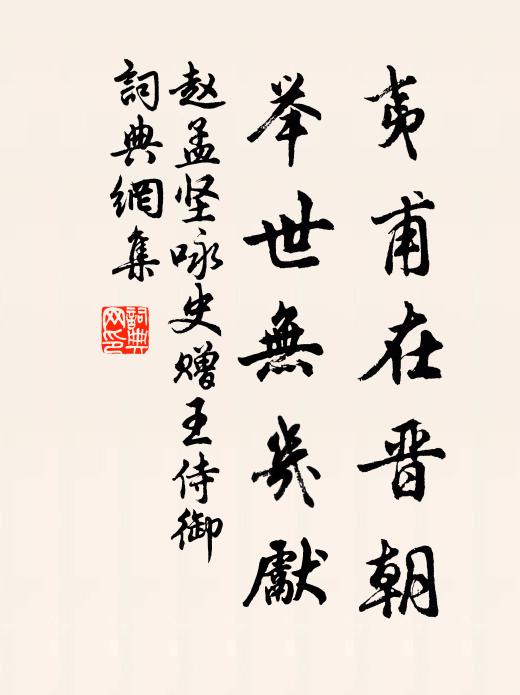 夷甫在晋朝
举世無幾獻
赵孟坚咏史赠王侍御
詞典網集
詞典网印